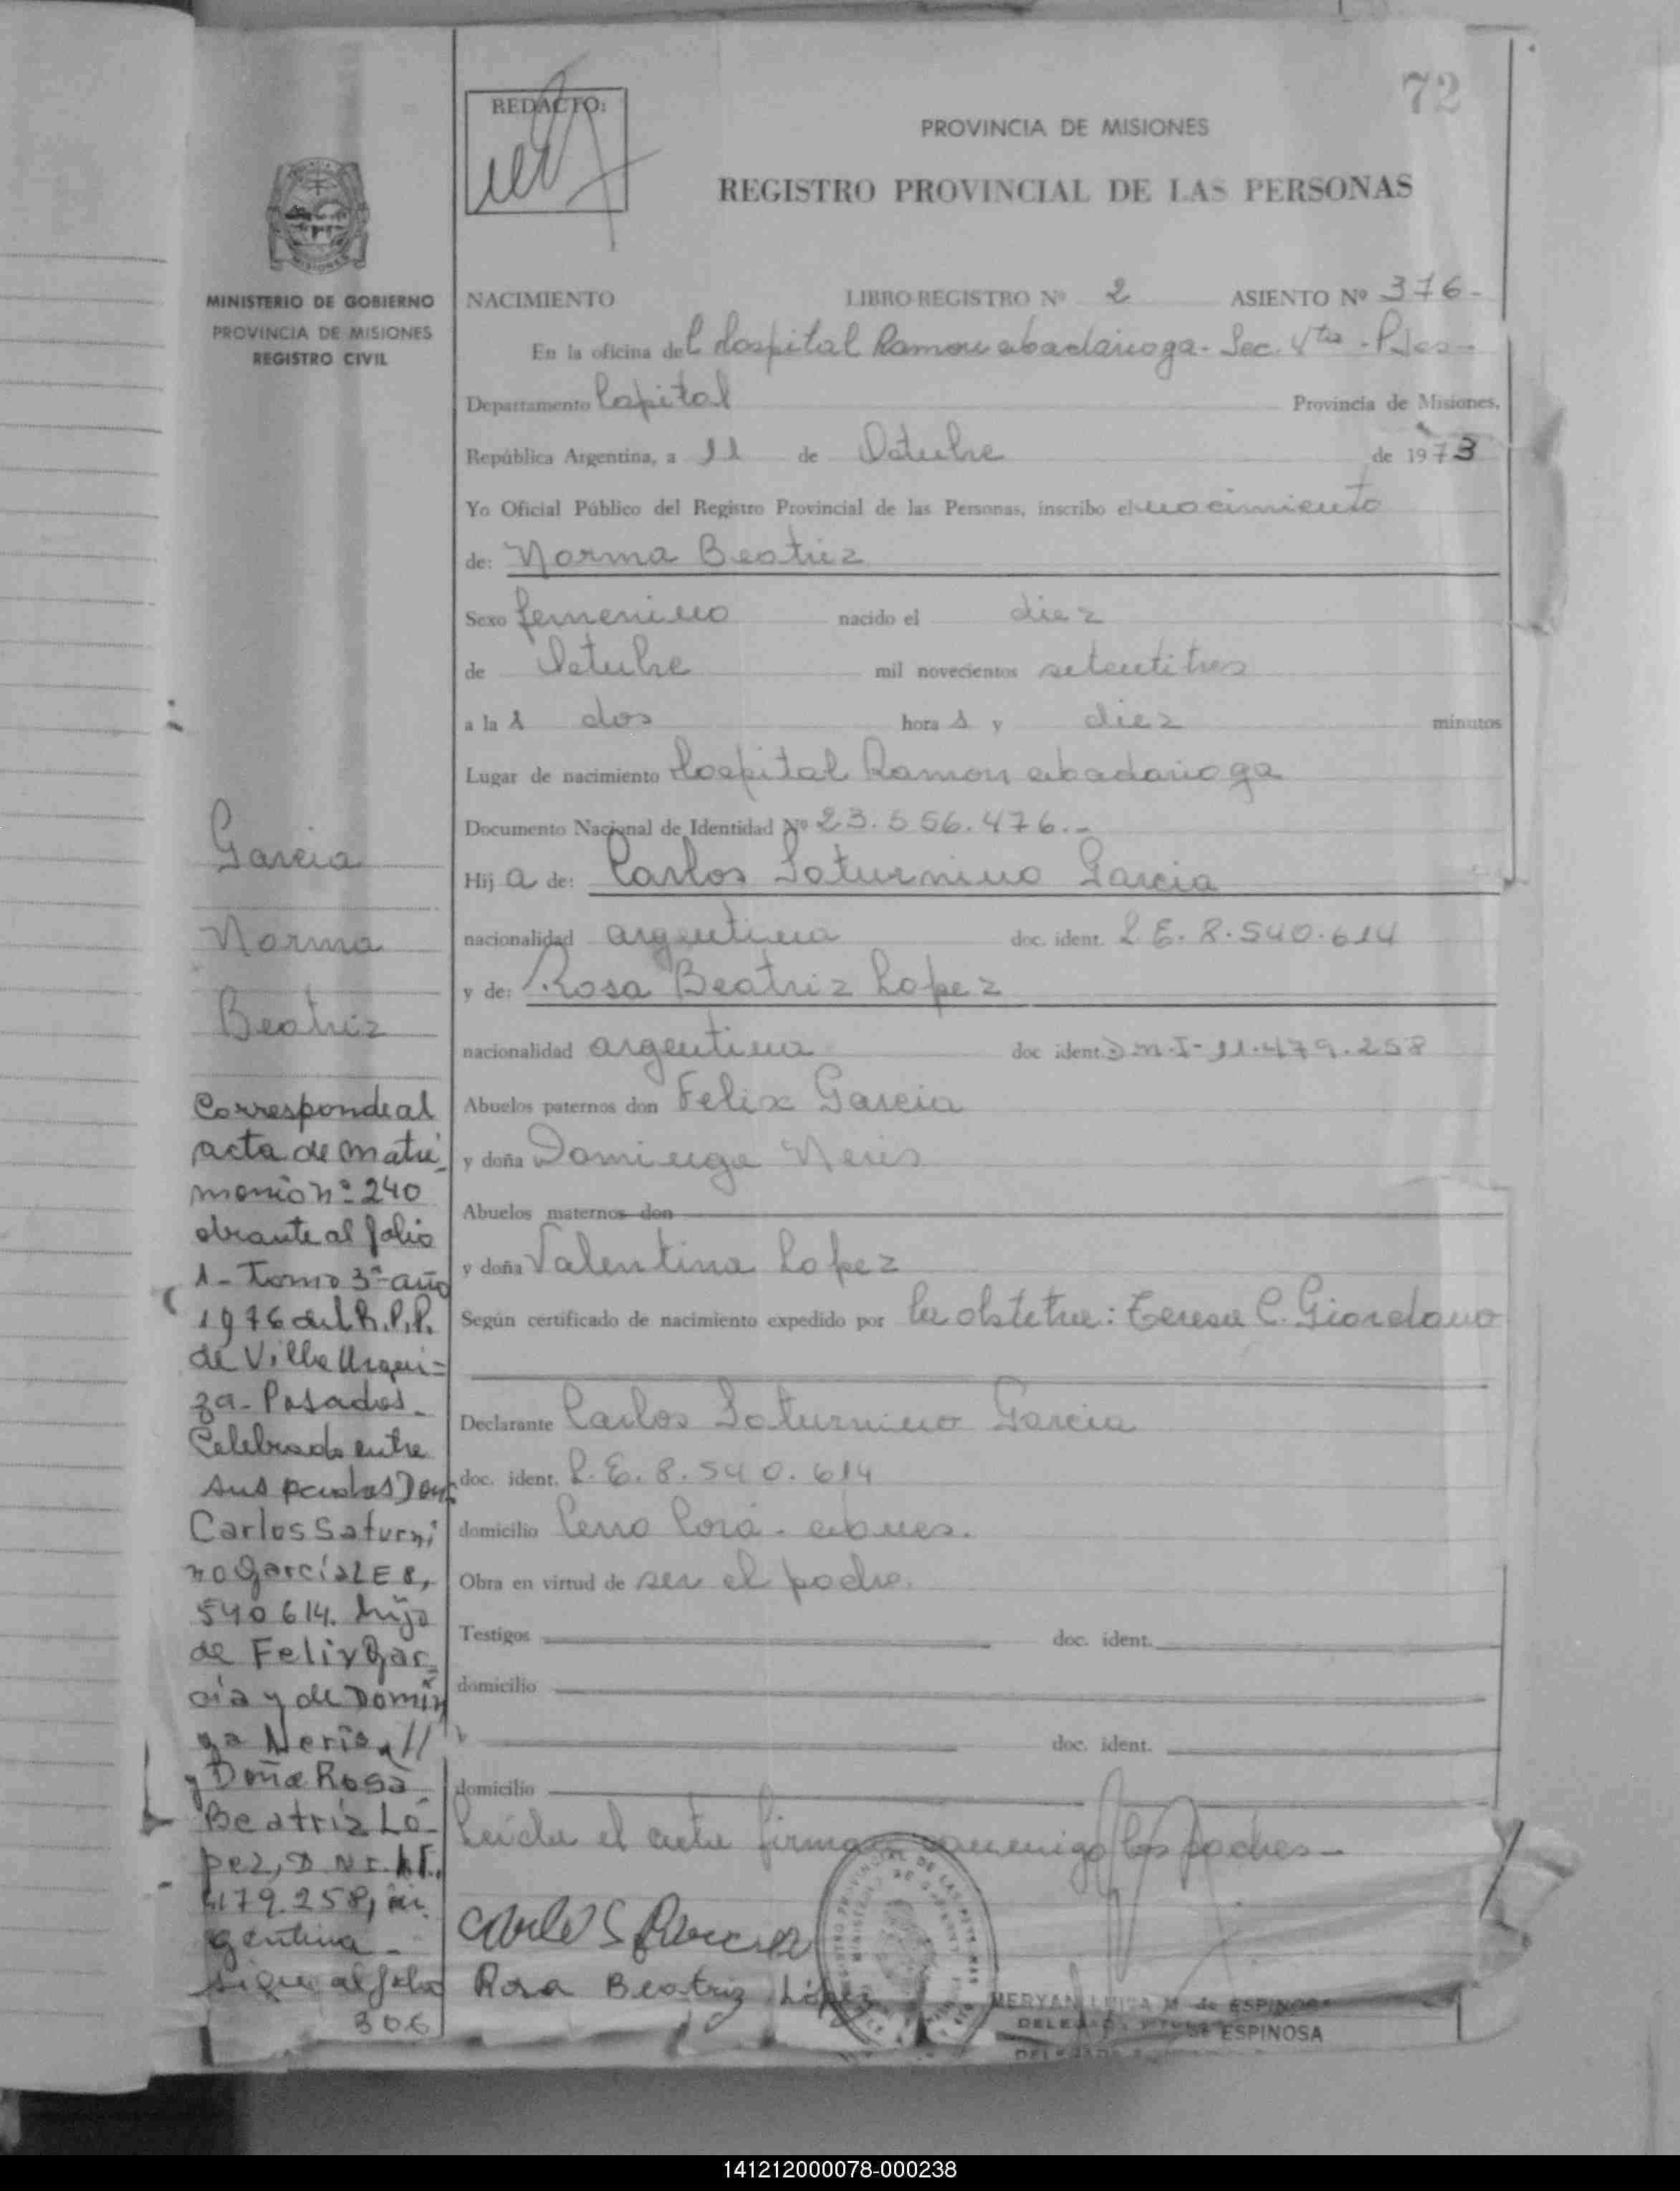 72
REDACTO:
PROVINCIA DE MISIONES
REGISTRO PROVINCIAL DE LAS PERSONAS
MINISTERIO DE GOBIERNO
PROVINCIA DE MISIONES
REGISTRO CIVIL
NACIMIENTO LIBRO REGISTRO Nº 2 ASIENTO Nº 376-
En la oficina del Hospital Ramon abadarioga - Sec. Vta - Pdas -
Departamento Capital Provincia de Misiones,
República Argentina, a 11 de Octubre de 1973
Yo Oficial Público del Registro Provincial de las Personas, inscribo el nacimiento
de: Norma Beatriz
Sexo femenino nacido el diez
de Octubre mil novecientos setentitres
a las dos horas y diez minutos
Lugar de nacimiento Hospital Ramon abadarioga
Documento Nacional de Identidad Nº 23.556.476.-
Hija de: Carlos Saturnino Garcia
nacionalidad argentina doc. ident. L.E. 8.540.614
y de: Rosa Beatriz Lopez
nacionalidad argentina doc ident. D.N.I- 11.479.258
Abuelos paternos don Felix Garcia
y doña Dominga Neris
Abuelos maternos don
y doña Valentina Lopez
Según certificado de nacimiento expedido por la obstetre: Teresa C. Giordano
Declarante Carlos Saturnino Garcia
doc. ident. L.E. 8.540.614
domicilio Cerro Corá - mnes.
Obra en virtud de ser el padre.
Testigos doc. ident.
domicilio
y doc. ident.
domicilio
Leída el acta firman conmigo los padres -
Carlos S Garcia
Rosa Beatriz López
MERYAN LUISA M. de ESPINOSA
DELEGADA
ESPINOSA
DELEGADA
Garcia
Norma
Beatriz
Corresponde al
acta de matri
monio nº 240
obrante al folio
1- Tomo 3º año
1976 del R.P.P.
de Villa Urqui=
za- Posadas-
Celebrado entre
sus padres Don
Carlos Saturni
no García LE 8,
540 614. hijo
de Felix Gar=
cía y de Domin
ga Neris //
y Doña Rosa
Beatriz Ló-
pez, D N I. 11.,
479.258, ar
gentina -
sigue al folio
306
141212000078-000238